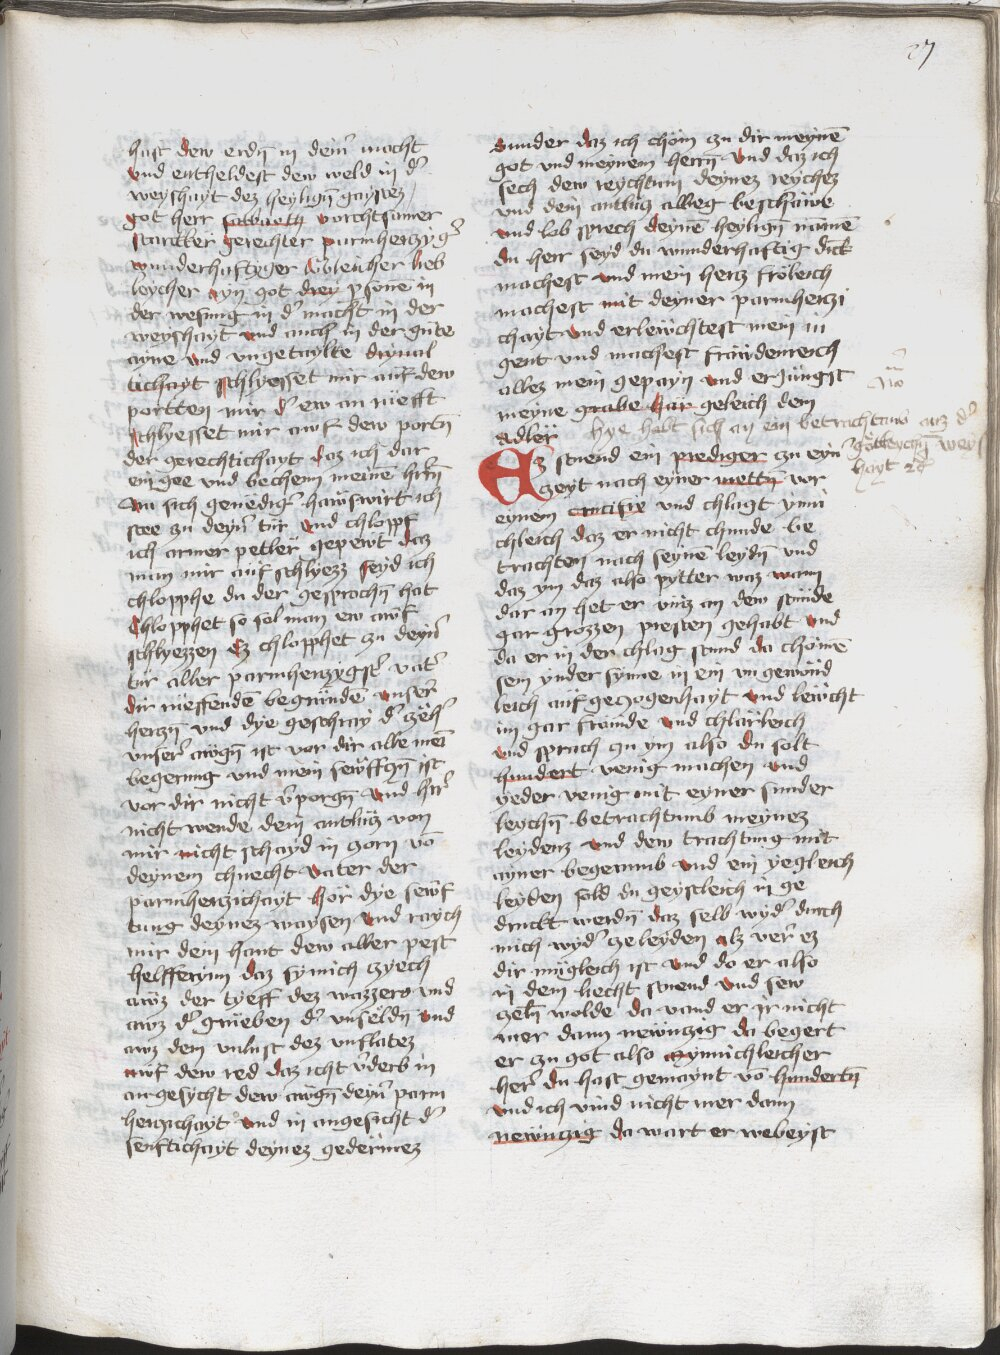 27
hast dew erdn̄ in dein̄ macht
vnd entheldest dew weld in d᾿
weyshayt dez heylign̄ gaystez
got herr sabaoth vorchtsamer
starkker gerechter parmhertzyg᾿
wunderhaftyger löbleicher lieb
leycher ayn got drey psone in
der wesung in d᾿ macht in der
weyshayt vnd auch in der güte
ayne vnd vngetaylte driual
tichayt schlyesset mir auf dew
portten mir d᾿ ew an rüefft
schlyesset mir awf dew portn̄
der gerechtichayt daz ich dar
ein gee vnd bechenn meinē hrn̄
sich genedig᾿ hawswirt ich
stee zu deyn᾿ tür vnd chlopf
ich armer petler gepewt daz
man mir auf schlyezz seyd ich
chlopphe du der gesprochn̄ hat
Chlopphet so sol man ew awf
schlyezzen Ez chlopphet zu deyn᾿
tür aller parmhertzygst᾿ vat᾿
dir rüeffende begründe vnser᾿
hertzn̄ vnd dye geschray d᾿ zeh᾿
vnser᾿ awgn̄ ist vor dir alle mei
begerung vnd mein sewfftzn̄ ist
vor dir nicht v᾿porgn̄ vnd hr᾿
nicht wende dein antlütz von
mir nicht schayd in zorn vō
deynem chnecht vater der
parmhertzichayt hör dye sewf
tzung deynez waysen vnd raych
mir dein hant dew aller pest
helfferyinn daz sy mich zyech
awz der tyeff dez wazzers vnd
awz d᾿ grüeben d᾿ vnseldn̄ vnd
awz dem vnlust dez vnflatez
awf dew red daz icht v᾿derb in
angesycht dew awgn̄ deyn᾿ parm
hertzichayt vnd in angesicht d᾿
senftichayt deynez gedermez
sunder daz ich chöm zu dir meynē
got vnd meynem herrn̄ vnd daz ich
sech dew reychtum deynez reychez
vnd dein antlutz albeg beschawe
vnd lob sprech deynē heylign̄ namē
du herr seyd du wunderhaftig dick
machest vnd mein hertz fröleich
machest mit deyner parmhertzi
chayt vnd erlewchtest mein iu
gent vnd machest fräwdenreich
allez mein gepayn vnd erjüngst
meyne grabe har geleich dem
adler
No
hye hebt sich an ein betrachtung awz d᾿
götleychn̄ weys
hayt 2c
Ez stuend ein prediger zu eyn᾿
zeyt nach eyner mettn̄ vor
eynem Crucifix vnd chlagt ynni
chleich daz er nicht chunde be
trachten nach seynē leydn̄ vnd
daz ym daz also pytter waz wann
dar an het er vntz an dew stunde
gar grozzen presten gehabt vnd
da er in der chlag stund da chomē
sein ynder synne in ein vngewönd
leich aufgezogenhayt vnd lewcht
im gar fraunde vnd chlarleich
vnd sprach zu ym also du solt
hundert venig machen vnd
yeder venig mit eyner sunder
leychn̄ betrachtumb meynez
leydenz vnd dew trachtung mit
ayner begerumb vnd ein yegleich
leyden sold du geystleich in ge
druckt werdn̄ daz selb wyd᾿ durch
mich wyd᾿ ze leyden alz ver᾿ ez
dir mügleich ist vnd do er also
in dem liecht stuend vnd sew
zeln̄ wolde da vand er ir nicht
mer dann newntzig da begert
er zu got also mynnichleicher
her᾿ du hast gemaynt vō hundertn̄
vnd ich vind nicht mer dann
newntzig da wart er webeyst